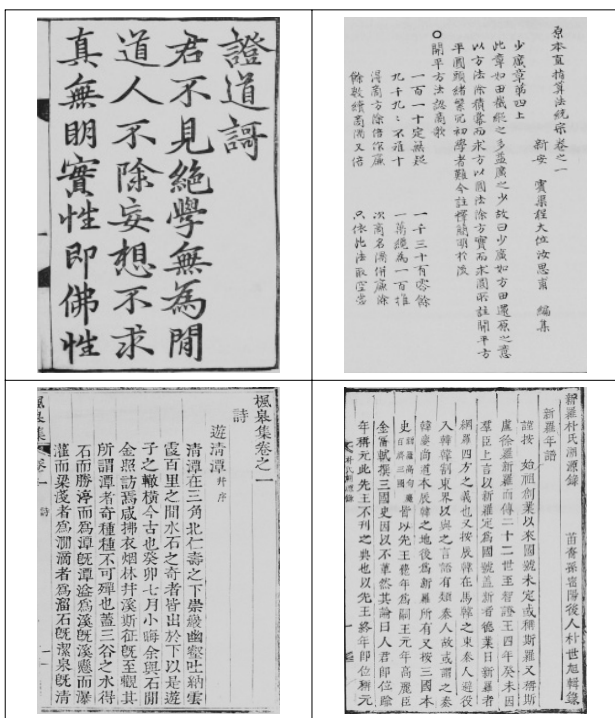 證道謌
君不見絶學無為閒
道人不除妄想不求
真無明實性即佛性
原本直指算法統宗卷之一
新安 賓渠程大位汝思甫 編集
少廣章第四上
此章如田截縱之多益廣之少故曰少廣如方田還原之意
以方法除積冪而求方以圓法除方實而求圓所註開平方
平圓頭緒繁冗初學者難今註釋簡明於後
○開平方法認商歌
一百一十定無疑 一千三十有零餘
九千九九不離十 一萬纔為一百推
得商方除倍作廉 次商名隅併廉除
餘數續商隅又倍 只依此法取空當
楓皋集卷之一
詩
遊清潭 幷序
清潭在三角北仁壽之下崇巖幽壑吐納雲
霞百里之間水石之奇者皆出於下以是遊
子之轍橫今古也癸卯七月小晦余與石閒
金照訪焉咸拂衣烟林幷溪斯征旣至觀其
所謂潭者奇種種不可殫也蓋三谷之水得
石而勝渟而爲潭旣潭爲溪旣溪懸而瀑
灌而梁淺者爲滴者爲溜石旣潔泉旣清
楓皋集 卷一 詩 一
新羅朴氏淵源錄 苗裔孫密陽後人朴世旭輯錄
新羅年譜
謹按 始祖創業以來國號未定或稱斯羅又稱斯
盧徐羅新羅而傳二十二世至智證王四年癸未因
群臣上言以新羅定爲國號蓋新者德業日新羅者
網羅四方之義也又按辰韓在馬韓之東秦人避役
入韓韓割東界以與之言語有類秦人故或謂之秦
韓尙道本辰韓之地後爲新羅所有又按三國本
史 新羅高句麗百濟三國 皆以先王薨年爲嗣王元年高麗臣
金富軾撰三國史因以不革然其論曰人君卽位踰
年稱元此先王不刊之典也以先王終年卽位稱元